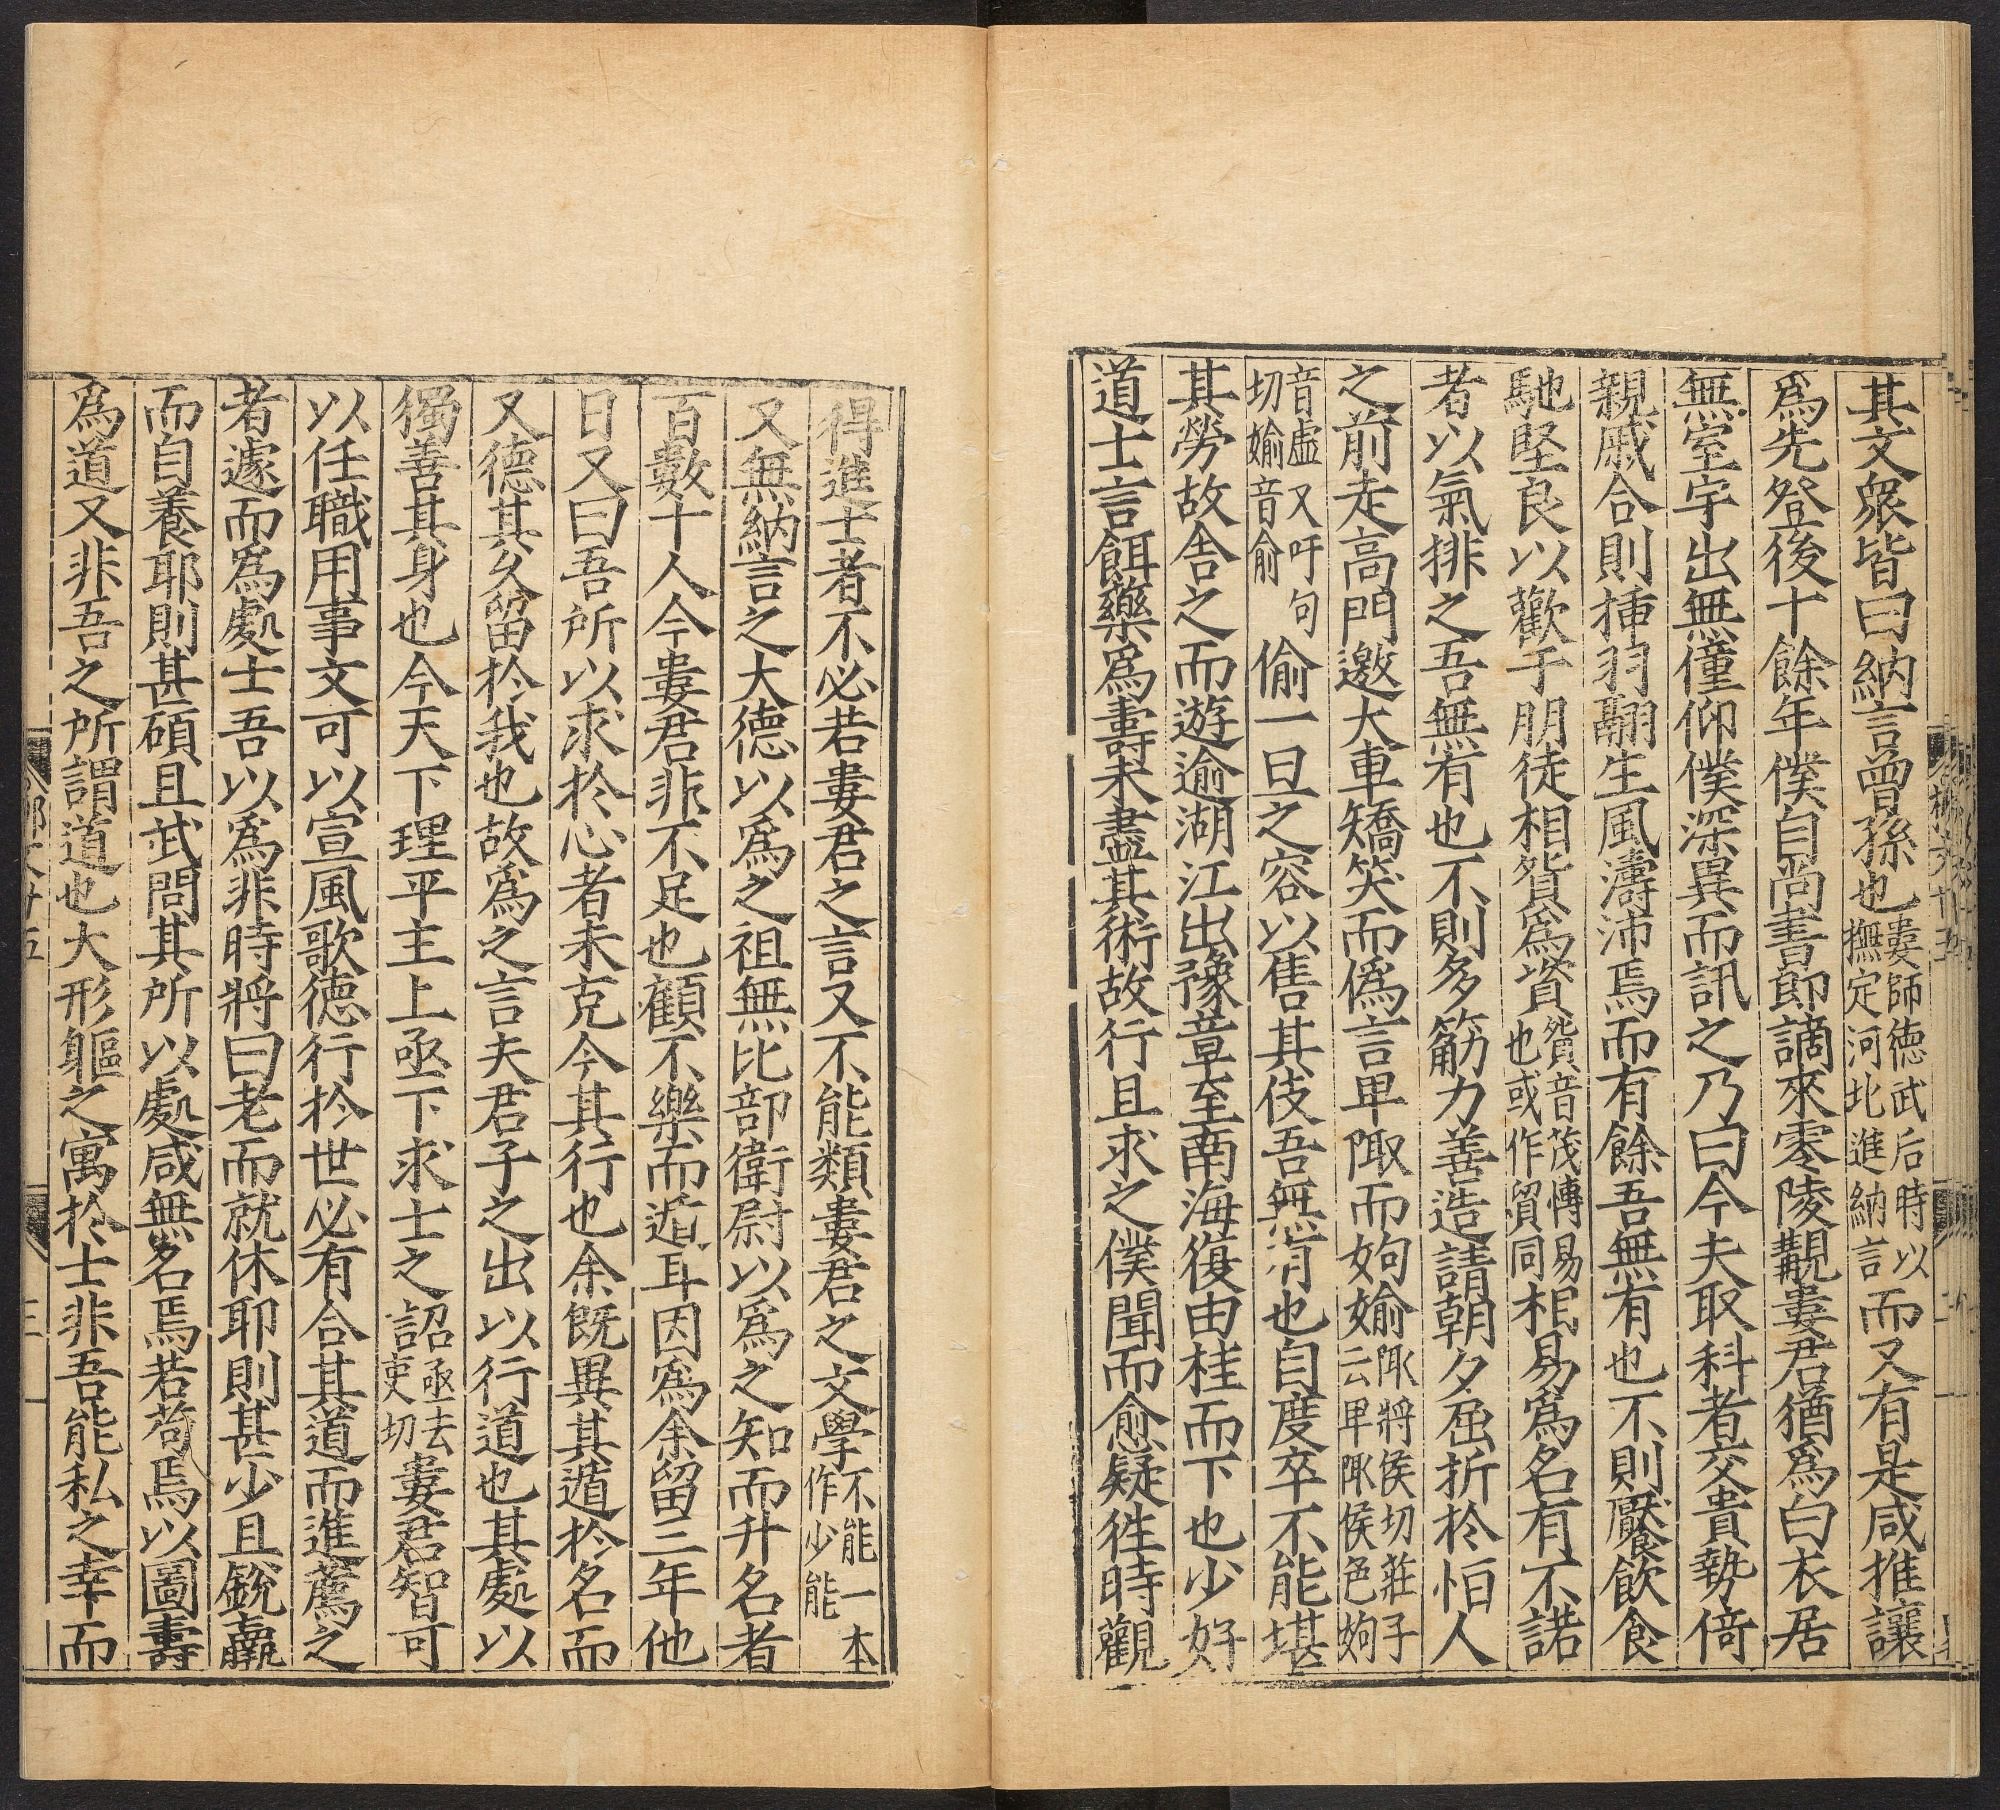 其文衆皆曰納言曾孫也婁師德武后時以撫定河北進納言而又有是咸推讓
爲先登後十餘年僕自尚書郎謫來零陵覯婁君猶爲白衣居
無室宇出無僮仰僕深異而訊之乃曰今夫取科者交貴勢倚
親戚合則揷羽翮生風濤沛焉而有餘吾無有也不則饜飲食
馳堅良以歡于朋徒相貿爲資貿音茂慱易也或作貿同相易爲名有不諾
者以氣排之吾無有也不則多筋力善造請朝夕屈折於恒人
之前走高門邀大車矯笑而僞言卑陬而姁媮陬將侯切莊子云卑陬侯邑姁
音虛又吁句切媮音俞偷一旦之容以售其伎吾無有也自度卒不能堪
其勞故舍之而遊逾湖江出豫章至南海復由桂而下也少好
道士言餌藥爲壽未盡其術故行且求之僕聞而愈疑徃時觀
得進士者不必若婁君之言又不能類婁君之文學不能一本作少能
又無納言之大德以爲之祖無比部衛尉以爲之知而升名者
百數十人今婁君非不足也顧不樂而遁耳因爲余留三年他
日又曰吾所以求於心者未克今其行也余旣異其遁於名而
又德其久留於我也故爲之言夫君子之出以行道也其處以
獨善其身也今天下理平主上亟下求士之詔亟去吏切婁君智可
以任職用事文可以宣風歌德行於世必有合其道而進薦之
者遽而爲處士吾以爲非時將曰老而就休耶則甚少且銳羸
而自養耶則甚碩且武問其所以處咸無名焉若苟焉以圖壽
爲道又非吾之所謂道也大形軀之寓於士非吾能私之幸而